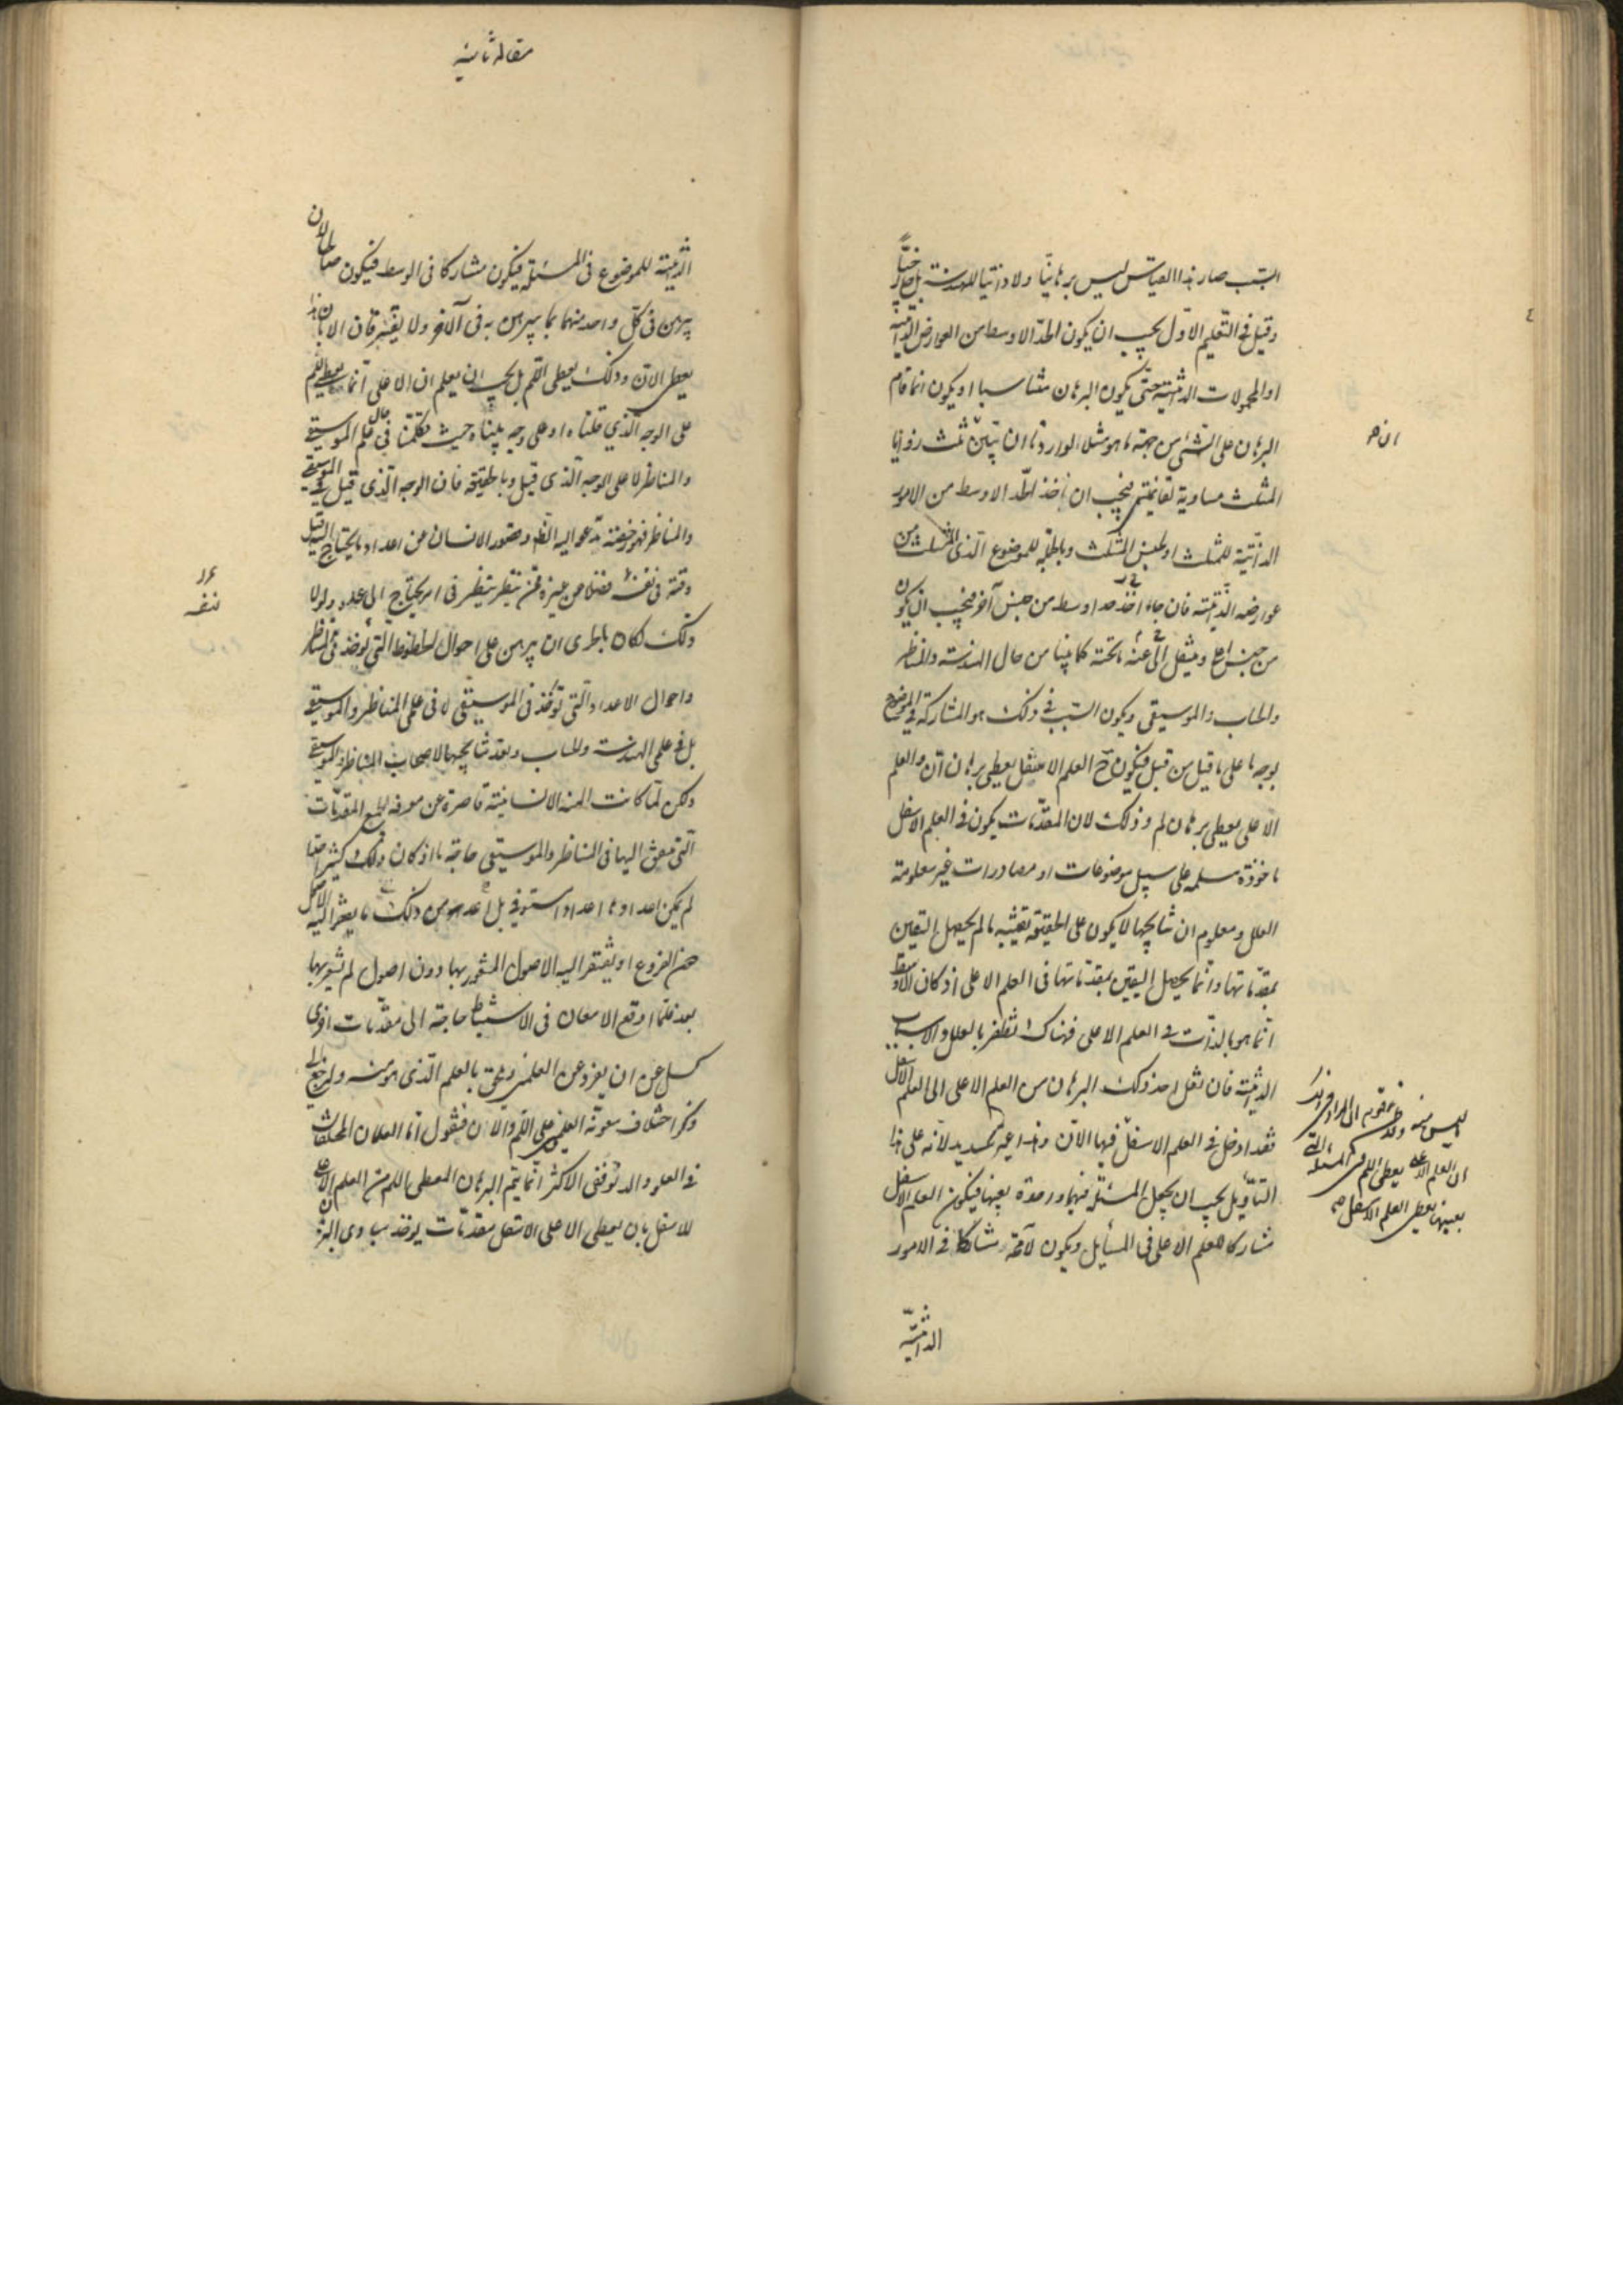 السبب صار هذا القياس ليس برهانيا ولا ذاتيا للهندسة بل خارجيا
وقيل في التعليم الاول يجب ان يكون الحد الاوسط من العوارض الذاتية
او المحمولات الذاتية حتى يكون البرهان مناسبا او يكون انما قام
البرهان على الشئ من جهة ما هو مثل الوارد ما ان تبين ثلث زوايا
المثلث مساوية لقائمتين فيجب ان ناخذ الحد الاوسط من الامور
الذاتية للمثلث او لجنس المثلث وبالجملة للموضوع الذى المثلث من
عوارضه الذاتية فان جاء اخذ حد اوسط من جنس آخر فيجب ان يكون
من جنس اعلى وينقل الى ما تحته كما بينا من حال الهندسة والمناظر
والحساب والموسيقى ويكون السبب فى ذلك هو المشاركة فى الموضوع
بوجه ما على ما قيل من قبل فيكون ح العلم الاسفل يعطى برهان ان والعلم
الاعلى يعطى برهان لم وذلك لان المقدمات يكون فى العلم الاسفل
ماخوذة مسلمة على سبيل موضوعات او مصادرات غير معلومة
العلل ومعلوم ان نتايجها لا يكون على الحقيقة يقينية ما لم يحصل اليقين
بمقدماتها وانما يحصل اليقين بمقدماتها فى العلم الاعلى اذ كان الاوسط
انما هو بالذات فى العلم الاعلى فهناك تظفر بالعلل والاسباب
الذاتية فان نقل احد ذلك البرهان من العلم الاعلى الى العلم الاسفل
فقد ادخل فى العلم الاسفل فيها الان غير سديد لانه على هذا
التاويل يجب ان يجعل المسئلة فيهما واحدة بعينها فيكون العلم الاسفل
مشاركا للعلم الاعلى فى المسائل ويكون لا محة مشاركا فى الامور
الذاتية
ليس منه
ان العلم الاعلى يعطى اللم فى المسئلة التى
بعينها يعطى العلم الاسفل
مقاله ثانيه
الذاتية للموضوع فى المسئلة فيكون مشاركا فى الوسط فيكون صالحا لان
يبرهن فى كل واحد منهما بما يبرهن به فى الآخر ولا يفترقان الا بان هذا
يعطى الان وذلك يعطى اللم بل يجب ان يعلم ان الاعلى انما يعطى اللم
على الوجه الذي قلناه او على وجه بيناه حيث تكلمنا فى حال علم الموسيقى
والمناظر لا على الوجه الذى قيل وبالحقيقة فان الوجه الذى قيل فى الموسيقى
والمناظر فهو رخصة تدعو اليه وقصور الانسان عن اعداد ما يحتاج اليه قبل
وقته فى نفسه فضلا عن غيره فمن ينظر ينظر فى امر يحتاج الى علم ولولا
ذلك لكان بالحرى ان يبرهن على احوال الخطوط التى توخذ فى المناظر
واحوال الاعداد التى توخذ فى الموسيقى لا فى علمى المناظر والموسيقى
بل فى علمى الهندسة والحساب وبعد نتايجها لاصحاب المناظر والموسيقى
ولكن لما كانت المنة الانسانية قاصرة عن معرفة جميع المقدمات
التى تبعث اليها فى المناظر والموسيقى حاجة ما اذ كان ذلك كثيرا جدا
لم يمكن اعدادها اعدادا مستوفى بل اعد من ذلك ما يعثر اليه
هذه الفروع او يفتقر اليه الاصول المشعور بها دون اصول لم يشعر بها
بعد فلما اوقع الامعان فى الاستنباط حاجة الى مقدمات اخرى
كسل عن ان يفرد عن العلمين ويلحق بالعلم الذى هو منه ولنرجع الى
ذكر اختلاف معونة العلمين على اللم والان فنقول اما العلمان المختلفان
فى العلو والدنو ففى الاكثر انما يتم البرهان المعطى اللم من العلم الاعلى
للاسفل بان يعطى الاعلى الاسفل مقدمات يوخذ مبادى البرهان